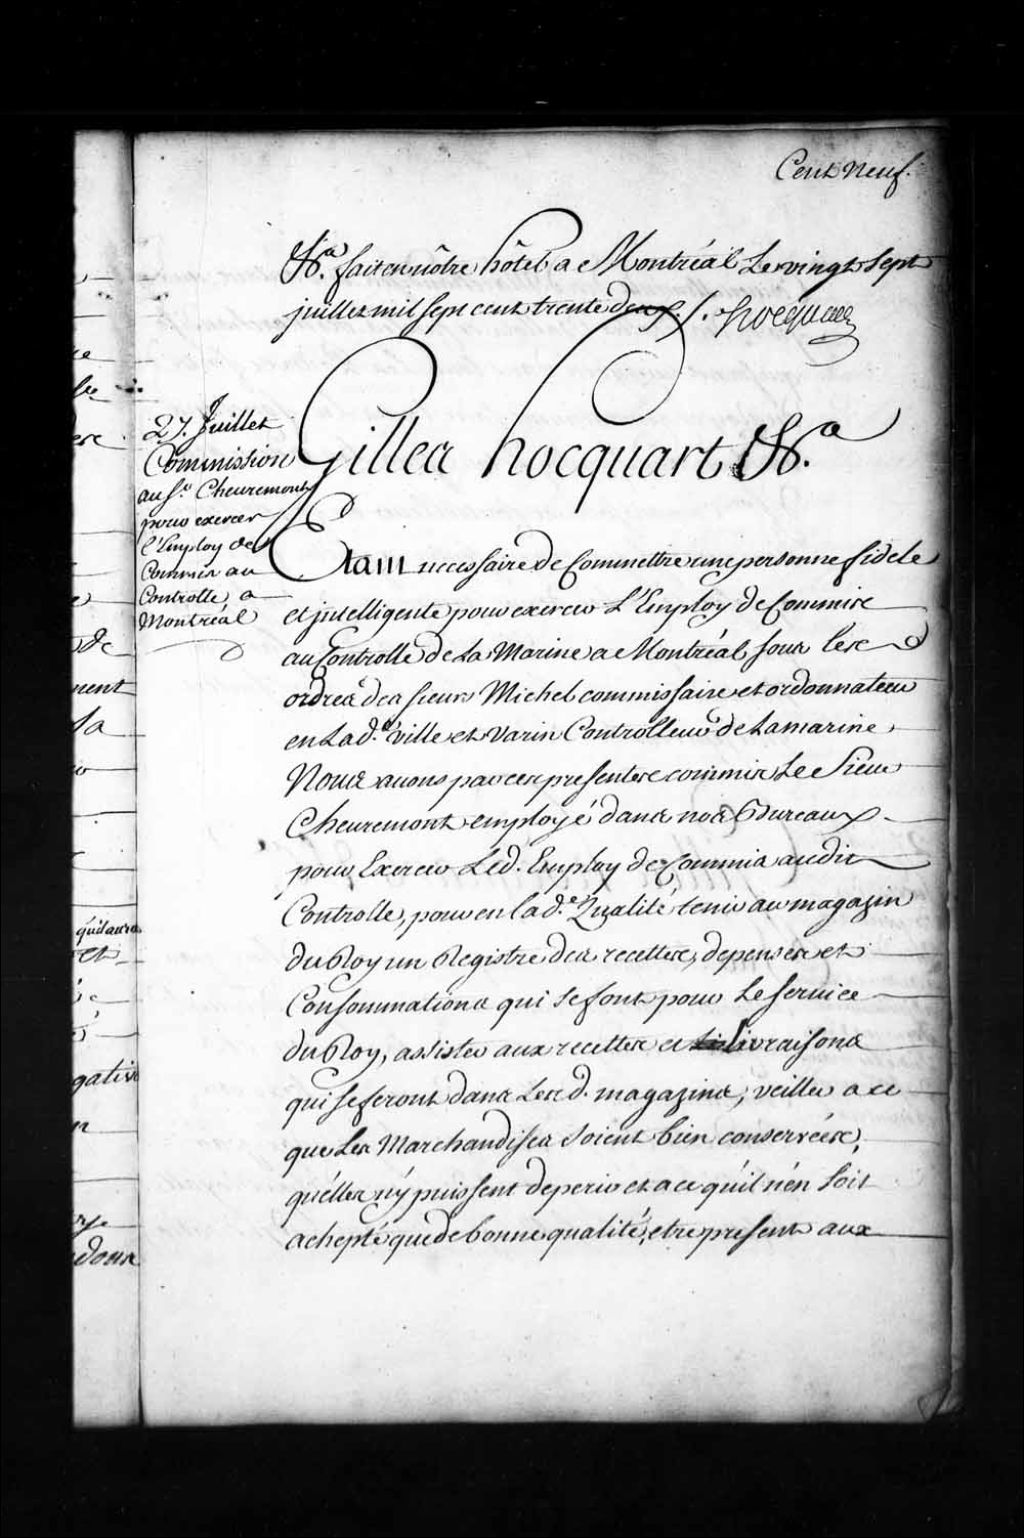 Cent Neuf.
&a. fait en nôtre hôtel a Montréal Le vingt sept
juillet mil sept cent trente deux. /. hocquart
27. Juillet
Commission
au Sr. Cheuremont
pour exercer
l'Employ de
Commis au
Controlle a
Montréal
Gilles hocquart &a.
Etant necessaire de Commettre une personne fidele
et jntelligente pour exercer L'Employ de Commis
au Controlle de La Marine a Montréal sous les
ordres des sieurs Michel commissaire et ordonnateur
en Lad.e ville et Varin Controlleur de La marine
Nous auons par ces presentes commis Le Sieur
Cheuremont employé dans nos Bureaux
pour Exercer Led. Employ de Commis audit
Controlle, pour en lad.e Qualité tenir au magazin
du Roy un Registre des recettes, depenses et
Consommations qui se font pour Le seruice
du Roy, assister aux recettes et livraisons
qui se feront dans Les d. magazins, veiller a ce
que Les Marchandises soient bien conservées,
qu'elles n'y puissent deperir et a ce qu'il n'en soit
achepté que de bonne qualité, etre present aux
ment
La
qu'il aura
et
gative